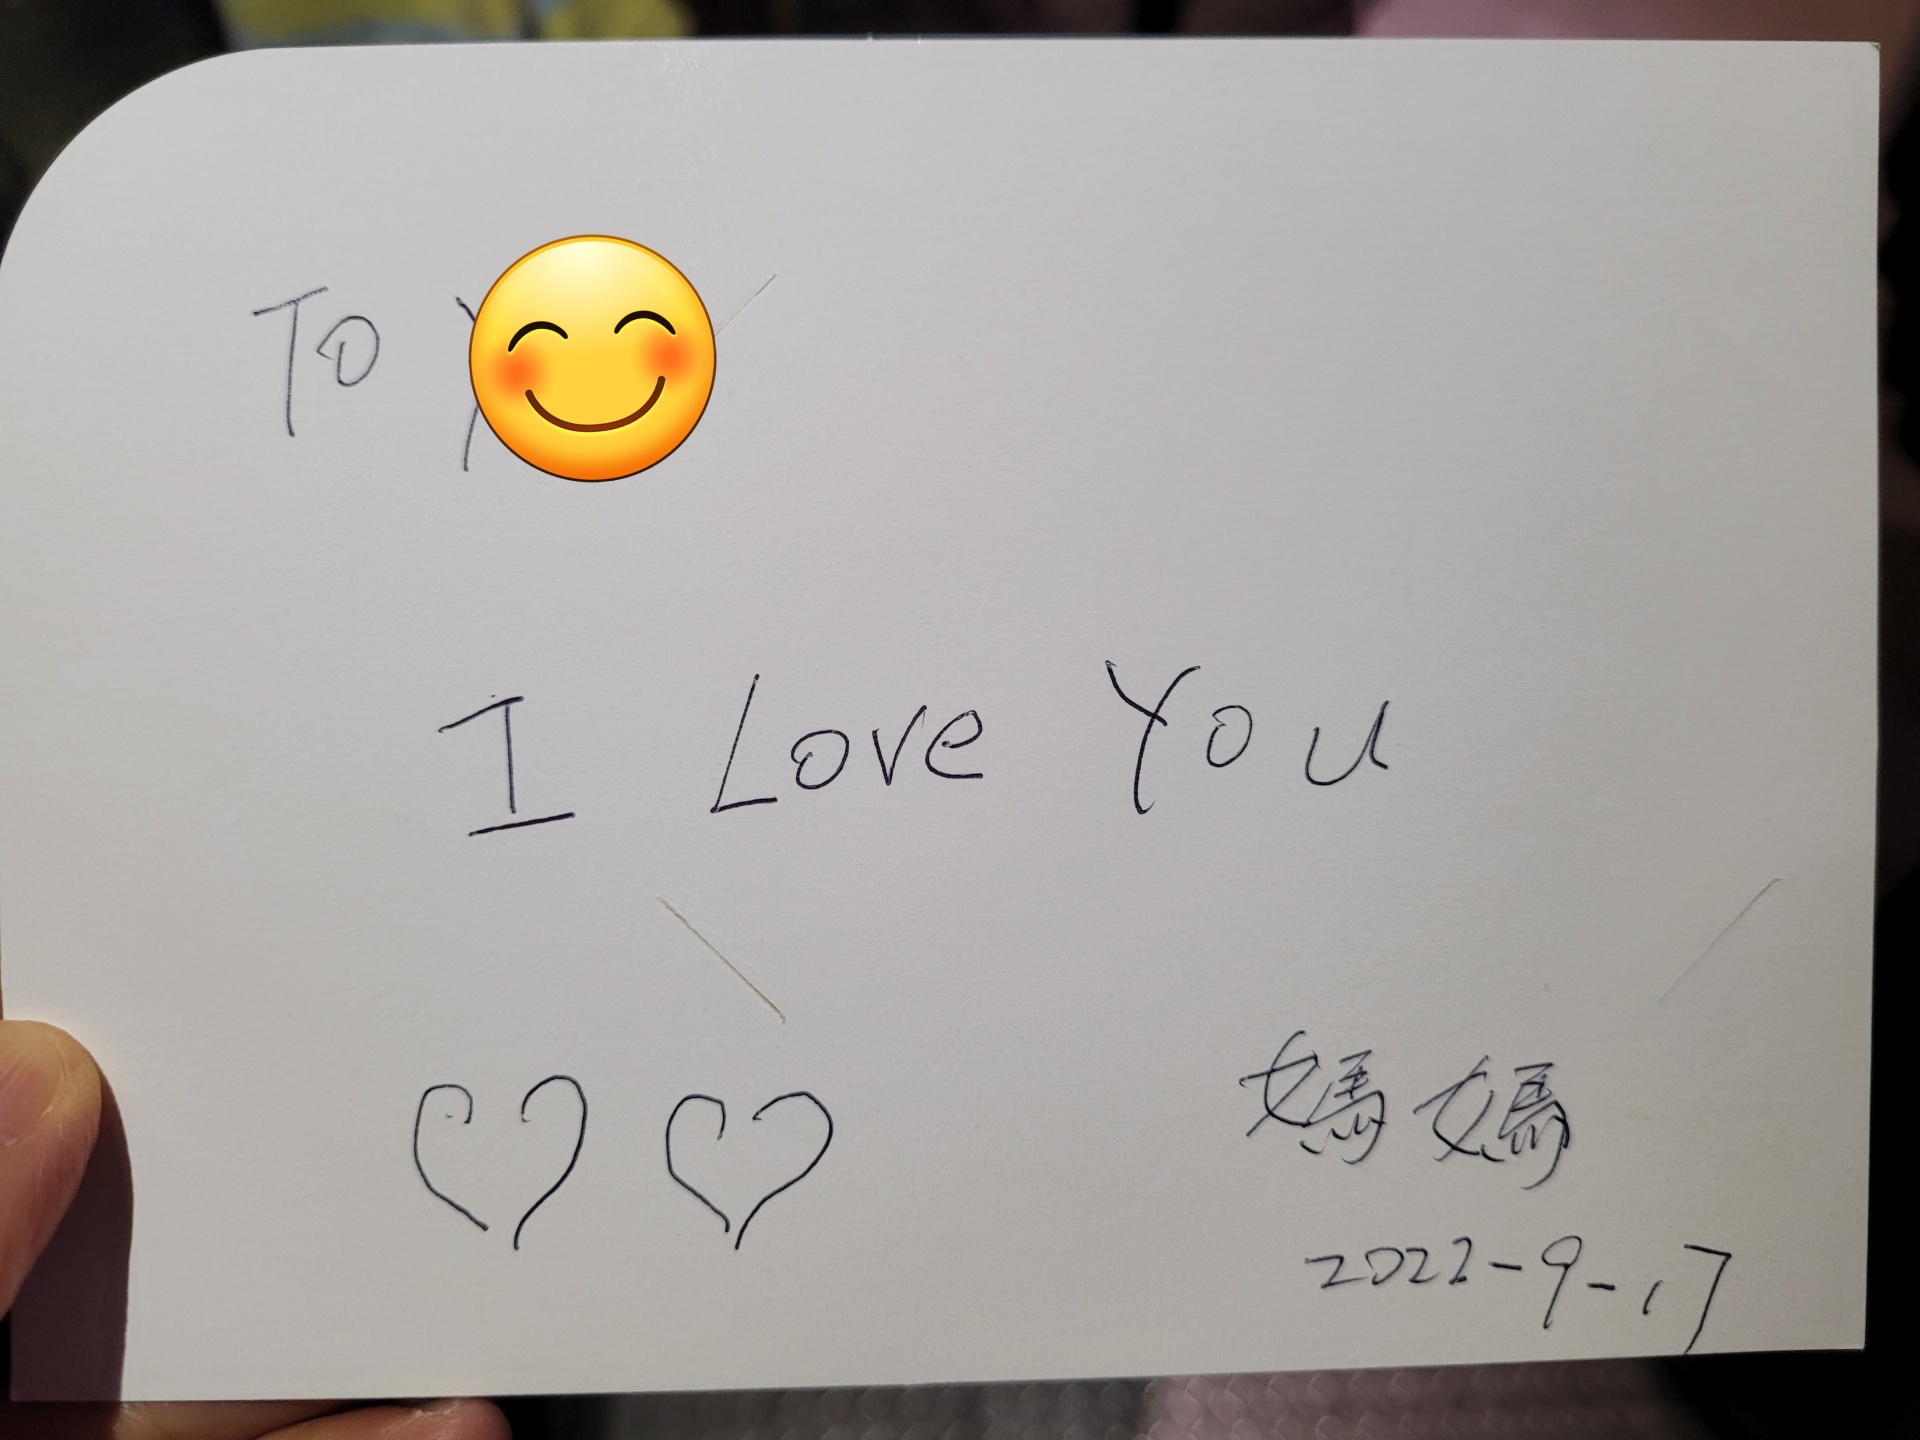 To
I Love You
媽媽
2022-9-17